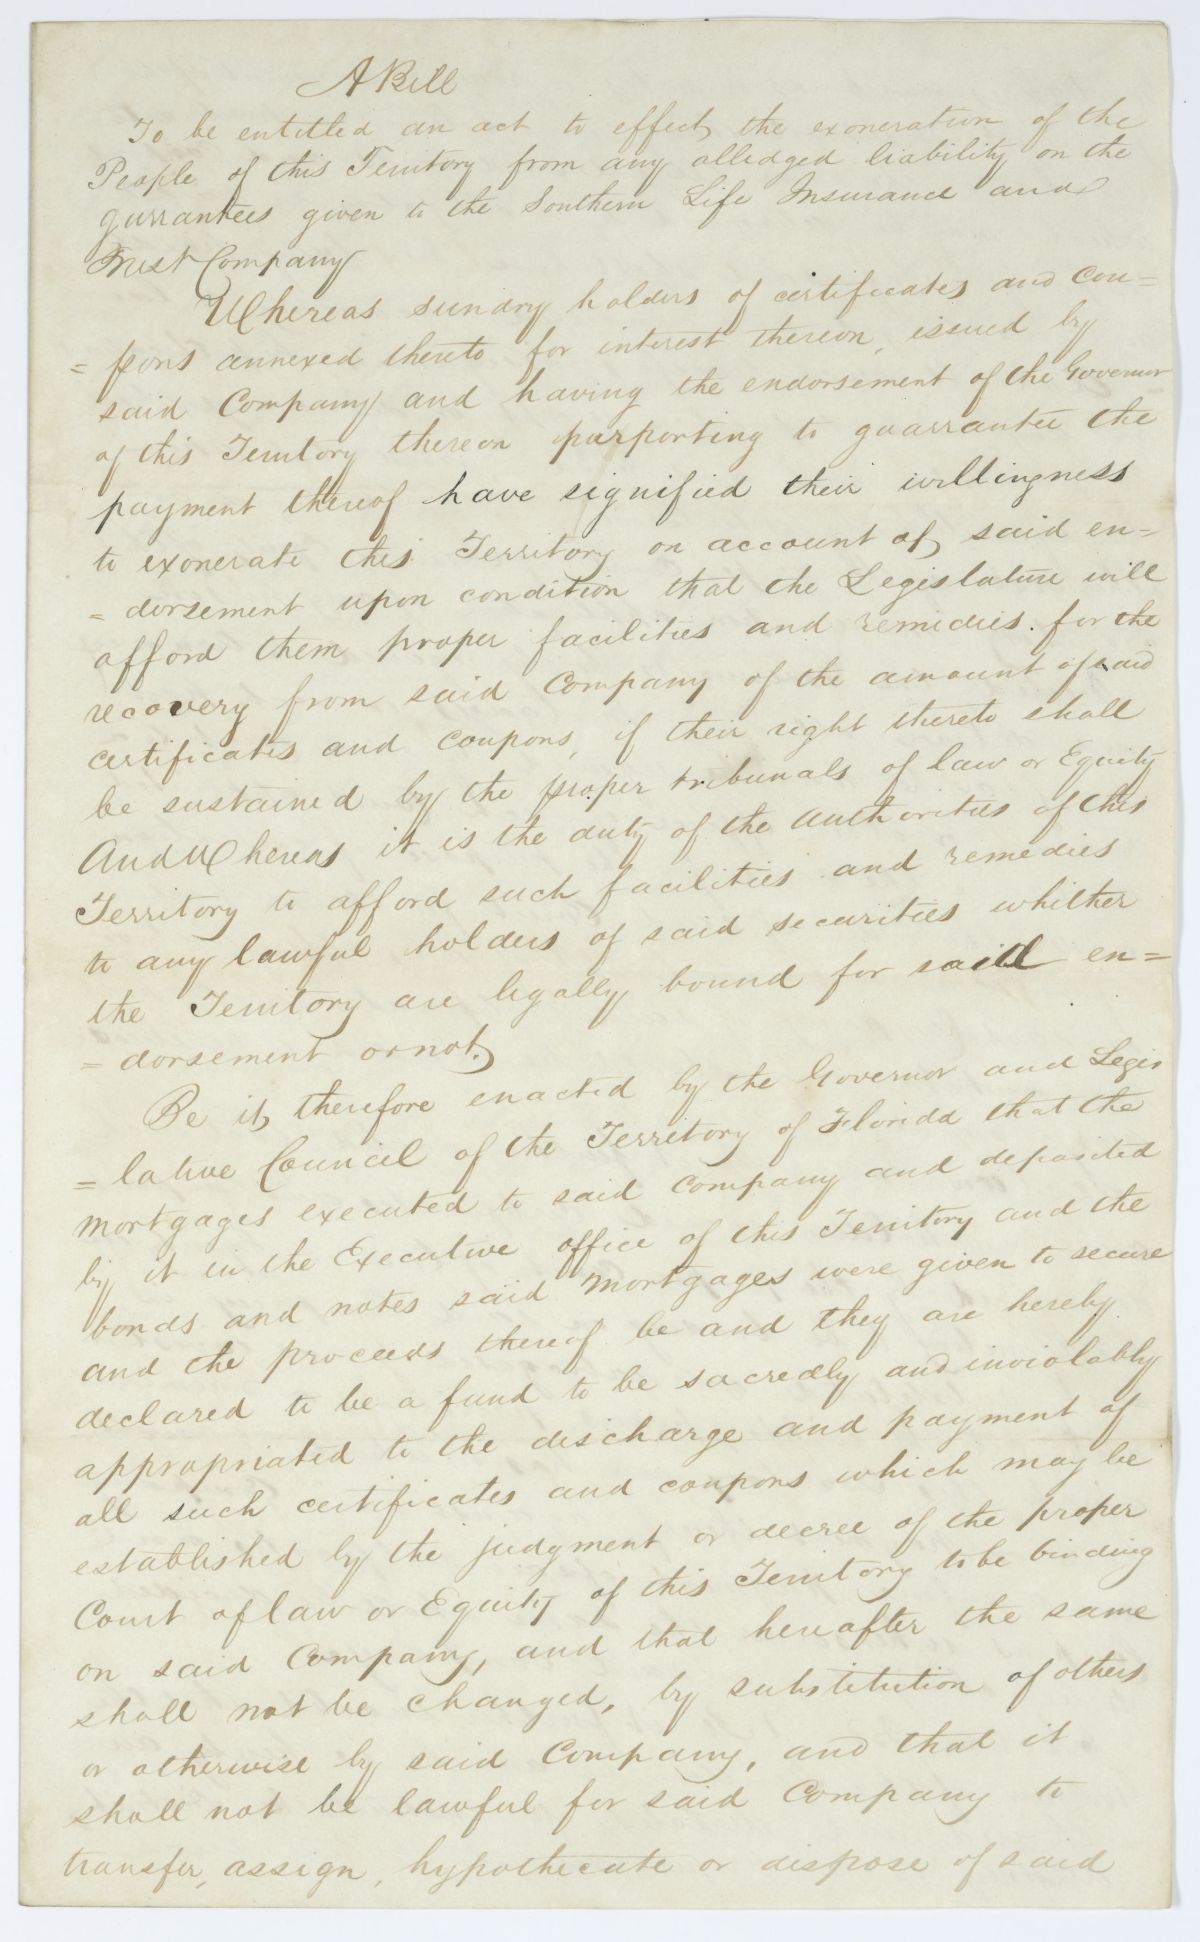 A Bill
To be entitled an act to effect, the exoneration of the
People of this Territory from any alledged liability on the
gurrantees given to the Southern Life Insurance and
Trust Company
Whereas sundry holders of certificates and Cou=
= pons annexed thereto for interest thereon, issued by
said Company and having the endorsement of the Governor
of this Territory thereon purporting to guarrantee the
payment thereof have signified their willingness
to exonerate this Territory on account of, said en=
= dorsement upon condition that the Legislature will
afford them proper facilities and remidies. for the
recovery from said Company of the amount of said
certificates and coupons, if their right thereto shall
be sustained by the proper tribunals of law or Equity
And Whereas it is the duty of the Authorities of this
Territory to afford such facilities and remedies
to any lawful holders of said securities whither
the Territory are legally bound for said en=
= dorsement or not.
Be it, therefore enacted by the Governor and Legis
= lative Council of the Territory of Florida that the
mortgages executed to said Company and deposited
by it in the Executive office of this Territory and the
bonds and notes said mortgages were given to secure
and the proceeds thereof be and they are hereby
declared to be a fund to be sacredly and inviolably
appropriated to the discharge and payment of
all such certificates and coupons which may be
established by the judgment or decree of the proper
Court of law or Equity of this Territory to be binding
on said Company, and that hereafter the same
shall not be changed, by substitution of others
or otherwise by said Company, and that it
shall not be lawful for said Company to
transfer, assign, hypothecate or dispose of said